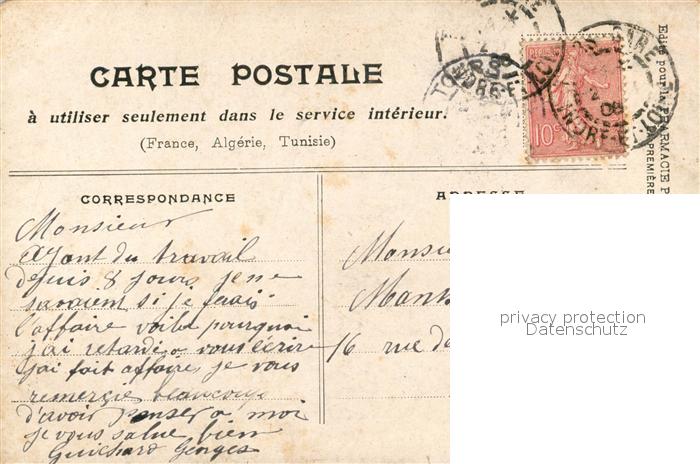 CARTE POSTALE
à utiliser seulement dans le service intérieur.
(France, Algérie, Tunisie)
Edité pour la PHARMACIE P
PREMIÈRE
10c
TOURS
INDRE-ET-LOIRE
CORRESPONDANCE
ADRESSE
Monsieur
Ayant du travail
depuis 8 jours je ne
savaient si je faais
l'affaire voila pourquoi
j'ai retardé a vous écrire
j'ai fait affaires je vous
remercie beaucoup
d'avoir penser a moi
je vous salue bien
Guichard Georges
Monsieu
Mans
16 rue de
privacy protection
Datenschutz